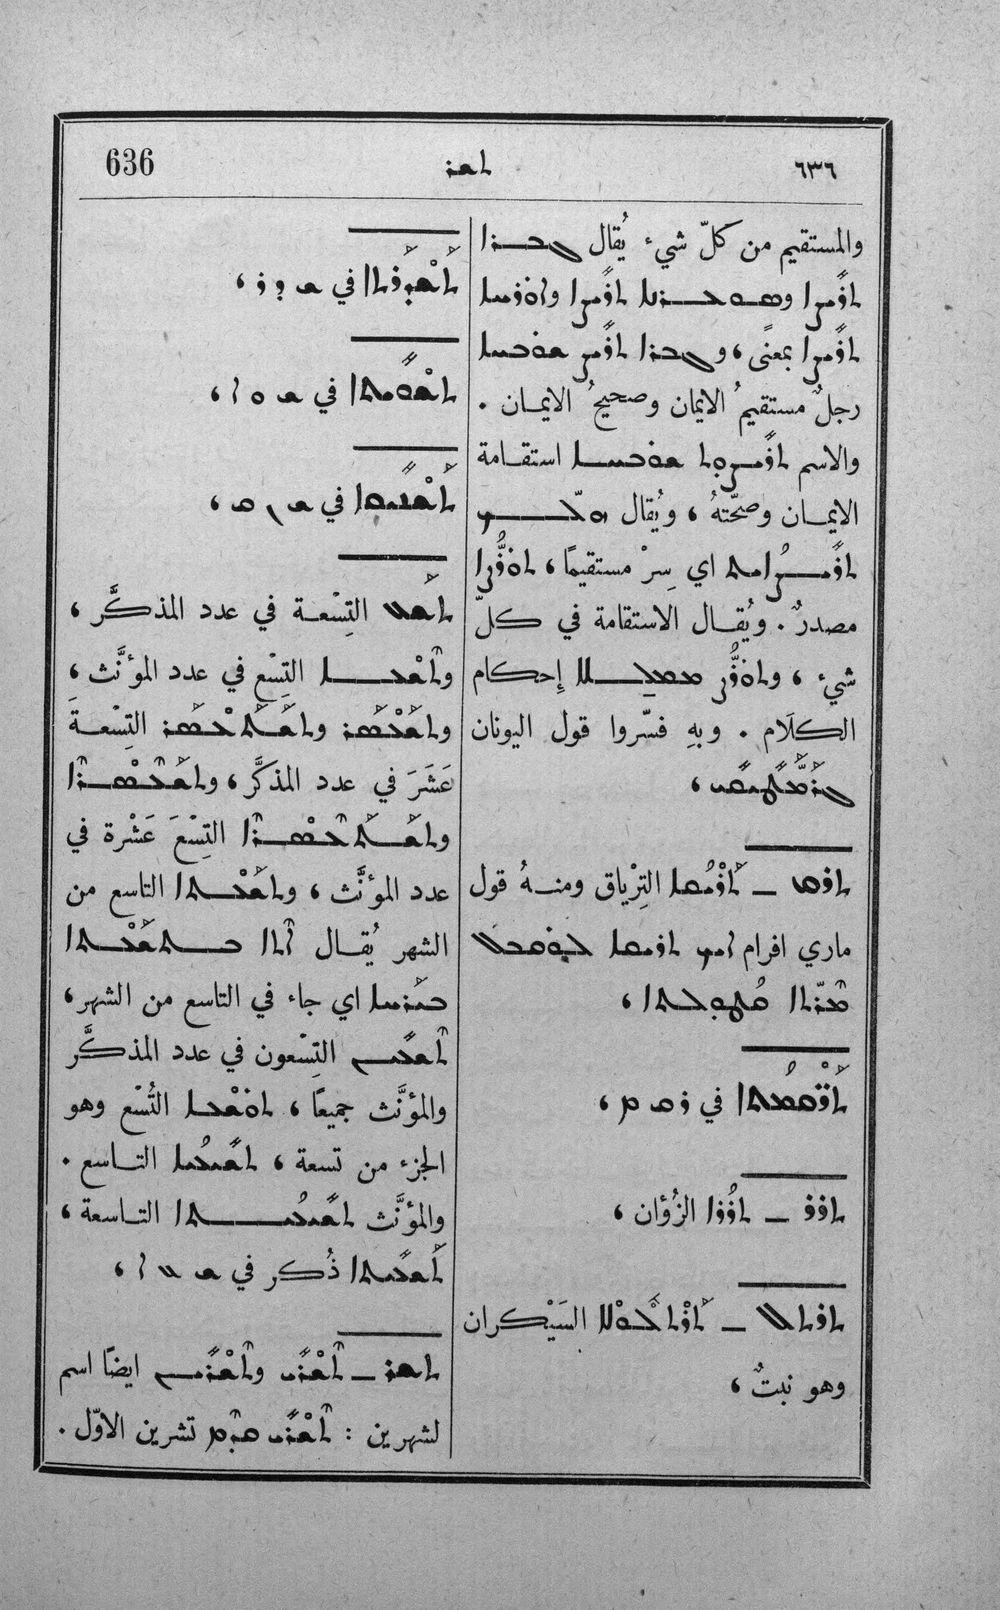 636 ܬܫܪ ٦٣٦
والمستقيم من كلّ شيء يُقال ܓܒܪܐ
ܬܪܝܨܐ
ܬܪܝܨܐ بمعنًى، وܓܒܪܐ ܬܪܝܨ ܫܘܒܚܐ
رجلٌ مستقيمُ الايمان وصحيحُ الايمـان .
والاسم ܬܪܝܨܘܬ ܫܘܒܚܐ استقـامة
الايمـان وصحّتهُ، ويُقال ܗܠܟ
ܬܪܝܨܐܝܬ اي سِرْ مستقيمًا، ܬܘܪܨܐ
مصدرٌ. ويُقـال الاستقامة في كـلّ
شيء، وܬܘܪܨ ܡܡܠܠܐ إحكام
الكلَام . وبهِ فسّروا قول اليونان
ܓܪܡܛܝܩܝ،
ܬܪܝܩ ـ التِرْياق ومنـهُ قول
ماري افرام ܐܝܟ
ܡܪܬܐ
في ܪ ܣ ܡ،
ܬܪܪ ـ ܬܪܪܐ الزُؤان،
السَيْكران
وهو نبتٌ،
في ܫ ܕ ܪ،
في ܫ ܘ ܐ،
في ܫ ܢ ܩ،
ܬܫܥ التِسْعـة في عدد المذكَّر،
وܬܫܥܐ التِسْع في عدد المؤنَّث،
وܬܫܥܣܪ وܬܫܬܥܣܪ التِسْعـةَ
عَشَرَ في عدد المذكَّر، وܬܫܥܣܪܐ
وܬܫܬܥܣܪܐ التِسْعَ عَشْرة في
عدد المؤنَّث، وܬܫܥܬܐ التاسع من
الشهر يُقـال ܐܬܐ ܒܬܫܥܬܐ
ܒܝܪܚܐ اي جاء في التاسع من الشهر،
ܬܫܥܝܢ التِسْعون في عدد المذكَّر
والمؤنَّث جميعًا، ܬܘܫܥܐ التُسْع وهو
الجزء من تسعة، ܬܫܝܥܝܐ التـاسع .
والمؤنَّث ܬܫܝܥܝܬܐ التـاسعة،
ܬܫܥܝܬܐ ذُكر في ܫ ܥ ܐ،
ܬܫܪ ـ ܬܫܪܝ وܬܫܪܝܢ ايضًا اسم
لشهرين : ܬܫܪܝ ܩܕܡ تشرين الاوّل .